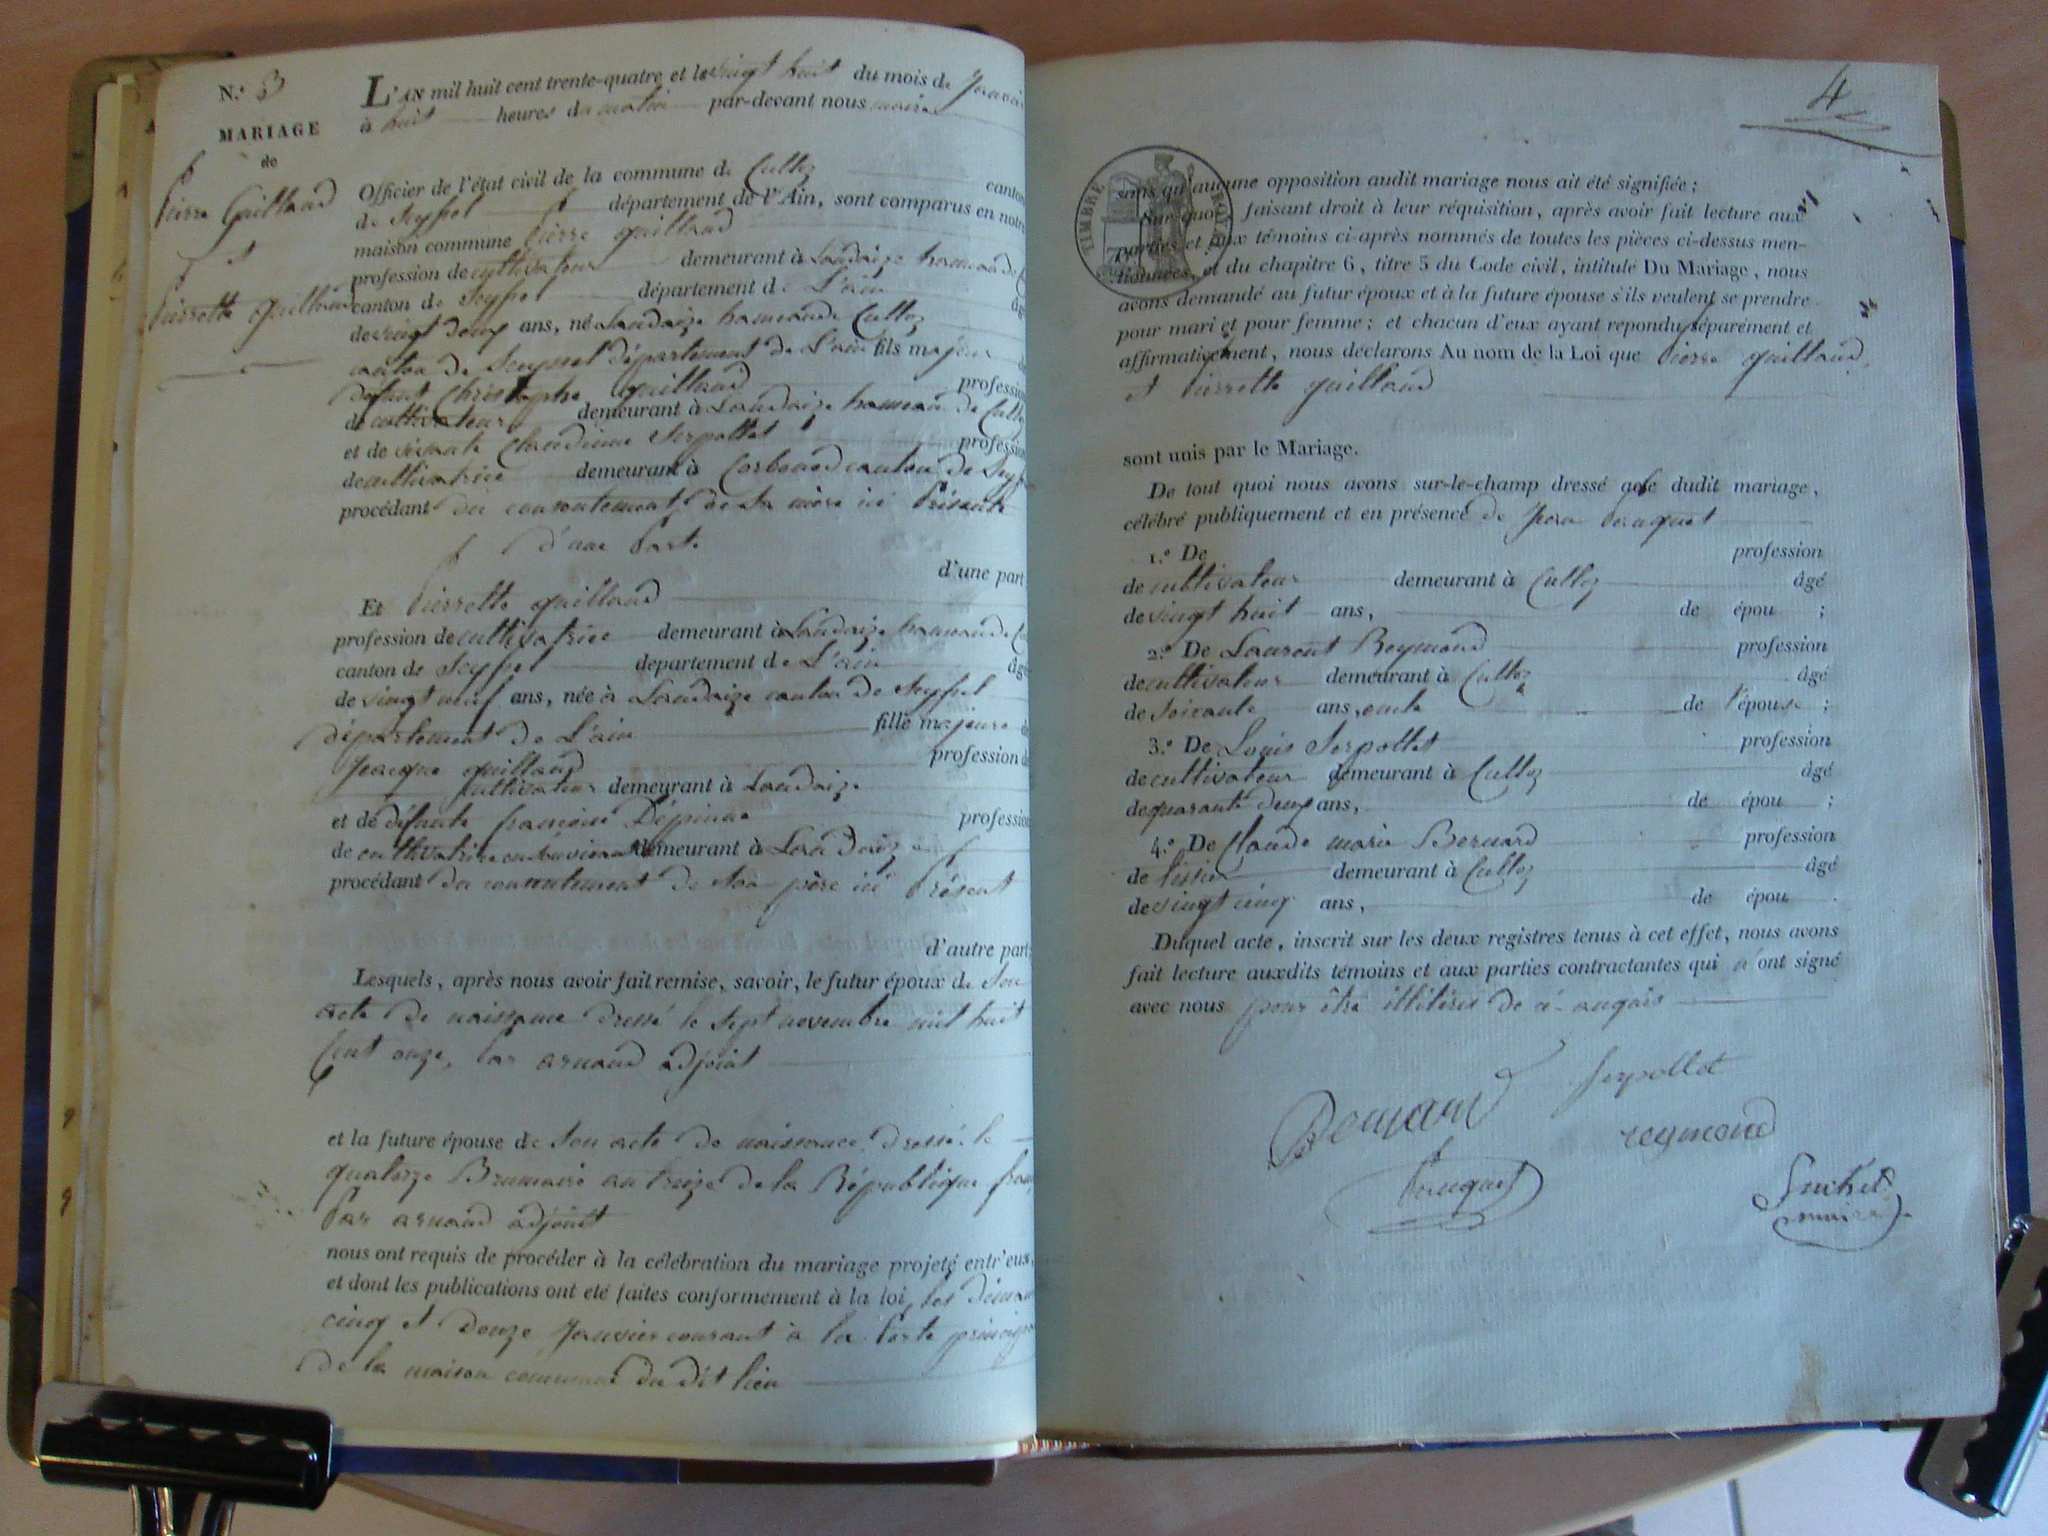 N.º 3
MARIAGE
de
Pierre Guilland
et
Pierrette guilland
L'AN mil huit cent trente-quatre et le vingt huit du mois de Janvier
à huit heures du matin par-devant nous maire
Officier de l'état civil de la commune de Culloz canton
de Seyssel département de l'Ain, sont comparus en notre
maison commune Pierre guilland
profession de cultivateur demeurant à Landaize hameau de
canton de Seyssel département de L'ain âgé
de vingt deux ans, né Landaize hameau de Culloz
canton de Seyssel département de L'ain fils majeur de
défunt Christophe guilland profession
de cultivateur demeurant à Landaize hameau de Culloz
et de vivante Claudine Serpollet profession
de cultivatrice demeurant à Corbonod canton de Seyssel
procédant du consentement de sa mère ici Présente
d'une Part
d'une part
Et Pierrette guilland
profession de cultivatrice demeurant à Landaize hameau de
canton de Seyssel département de L'ain âgé
de vingt neuf ans, née à Landaize canton de Seyssel
département de L'ain fille majeure de
Jeacque guilland profession de
cultivateur demeurant à Landaize
et de défunte francoise Dépinne profession
de cultivatrice demeurant à Landaize
procédant du consentement de son père ici Présent
d'autre part
Lesquels, après nous avoir fait remise, savoir, le futur époux de Son
acte de naissance dressé le sept novembre mil huit
Cent onze, Par arnaud adjoint
et la future épouse de Son acte de naissance dressé le
quatorze Brumaire an treize de la République
Par arnaud adjoint
nous ont requis de procéder à la célébration du mariage projeté entr'eux,
et dont les publications ont été faites conformément à la loi, les
cinq et douze Janvier courant à la Porte
de la maison commune du dit lieu
4
TIMBRE ROYAL
sans qu'aucune opposition audit mariage nous ait été signifiée ;
Sur quoi, faisant droit à leur réquisition, après avoir fait lecture aux
parties et aux témoins ci-après nommés de toutes les pièces ci-dessus men-
tionnées, et du chapitre 6, titre 5 du Code civil, intitulé Du Mariage, nous
avons demandé au futur époux et à la future épouse s'ils veulent se prendre
pour mari et pour femme ; et chacun d'eux ayant repondu séparément et
affirmativement, nous déclarons Au nom de la Loi que Pierre guilland
et Pierrette guilland
sont unis par le Mariage.
De tout quoi nous avons sur-le-champ dressé acte dudit mariage,
célébré publiquement et en présence de Jean Fauquet
1.º De profession
de cultivateur demeurant à Culloz âgé
de vingt huit ans, de épou ;
2.º De Laurent Reymond profession
de cultivateur demeurant à Culloz âgé
de soixante ans, oncle de l'épouse ;
3.º De Louis Serpollet profession
de cultivateur demeurant à Culloz âgé
de quarante deux ans, de épou ;
4.º De Claude marie Bernard profession
de demeurant à Culloz âgé
de vingt cinq ans, de épou .
Duquel acte, inscrit sur les deux registres tenus à cet effet, nous avons
fait lecture auxdits témoins et aux parties contractantes qui n'ont signé
avec nous pour être illitérés de ce
Serpollet
reymond
Fauquet
maire